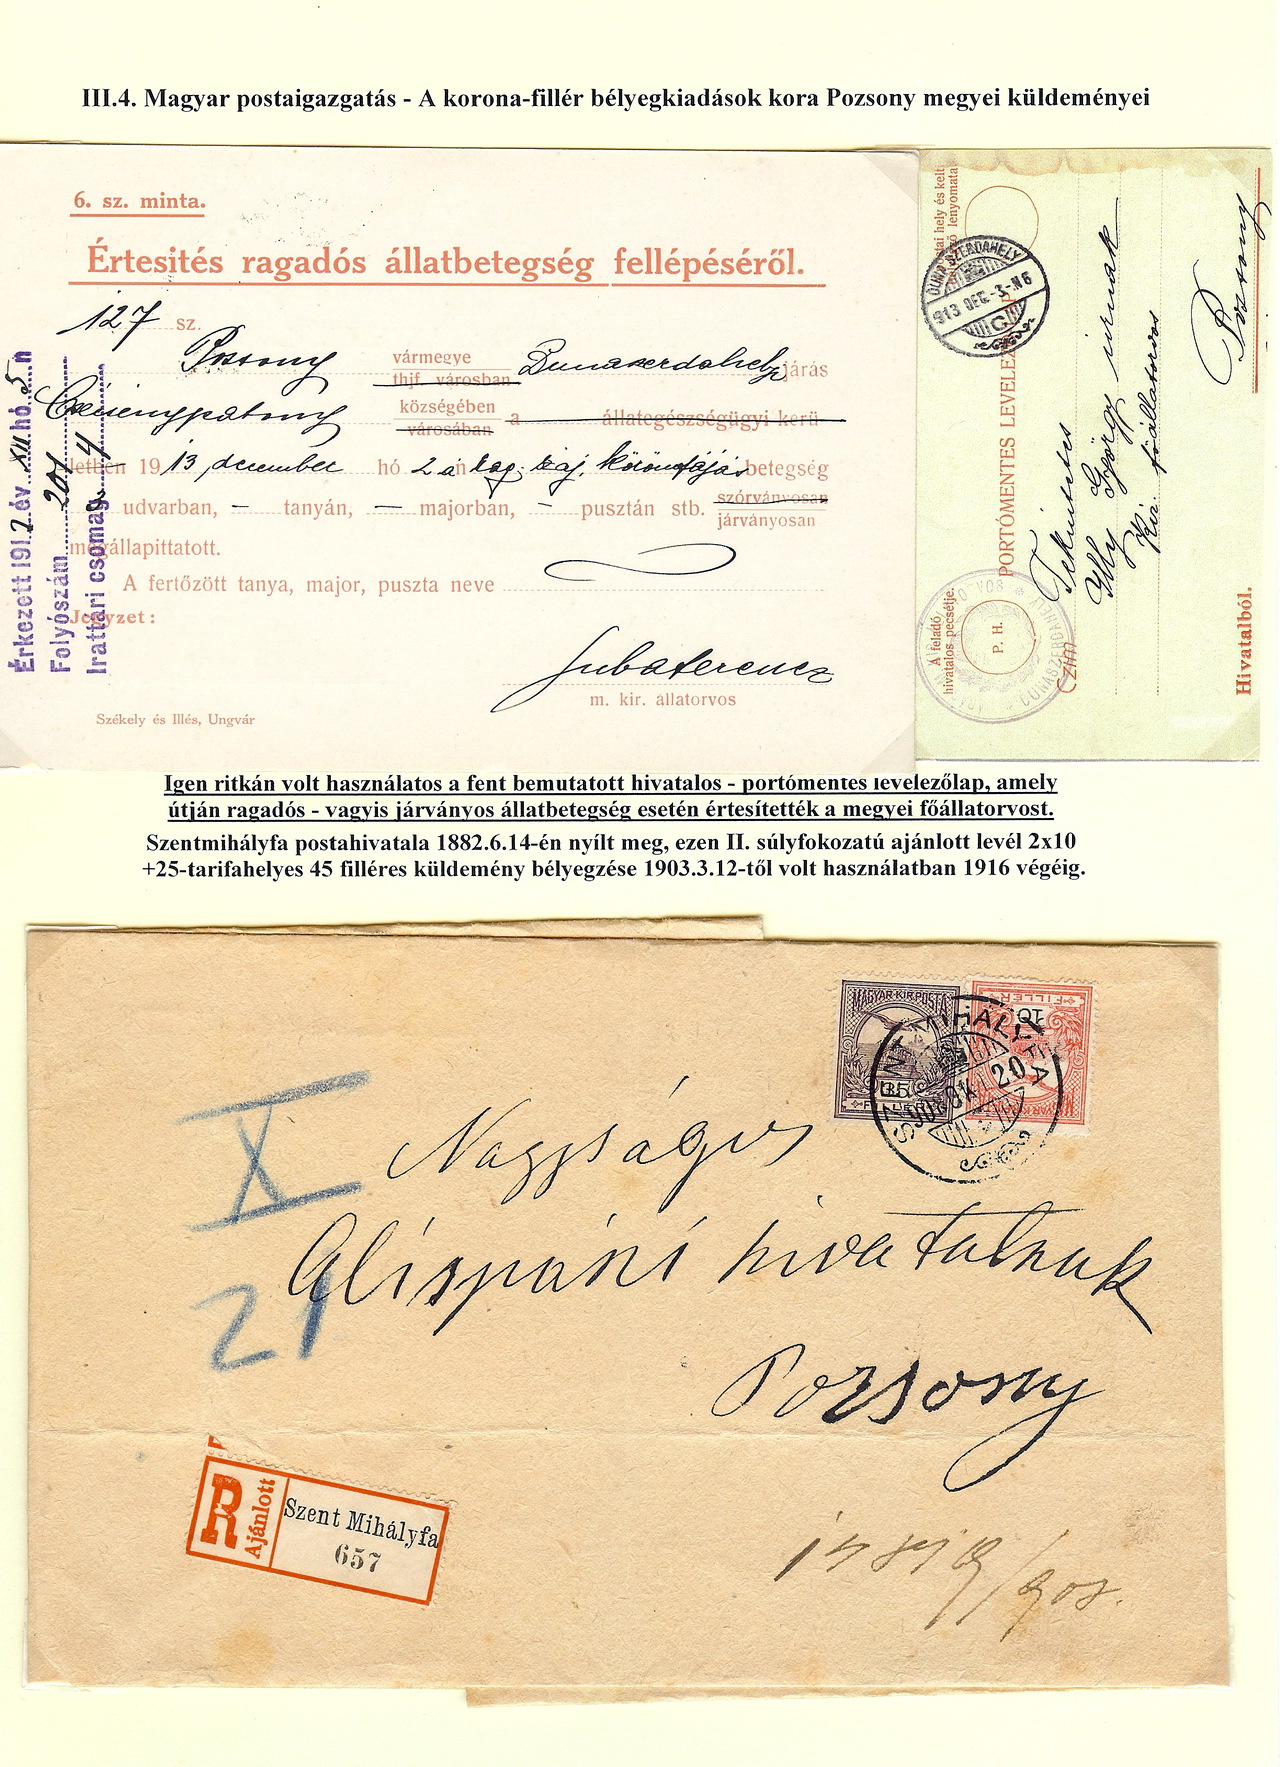 III.4. Magyar postaigazgatás - A korona-fillér bélyegkiadások kora Pozsony megyei küldeményei
6. sz. minta.
Értesités ragadós állatbetegség fellépéséről.
127 sz.
Pozsony vármegye Dunaszerdahely járás
thjf. városban
községében a állategészségügyi kerü-
városában
letben 1913 december hó 2 án rag. száj. körömfájás betegség
udvarban, — tanyán, — majorban, — pusztán stb. szórványosan
járványosan
megállapittatott.
A fertőzött tanya, major, puszta neve
Jegyzet:
m. kir. állatorvos
Székely és Illés, Ungvár
Érkezett 1912 év XII hó 5 n
Folyószám 201
Irattári csomag 4
tai hely és kelt
ző lenyomata
DUNA-SZERDAHELY
913 DEC.-3.-N6
C
PORTÓMENTES LEVELEZŐLAP
A feladó
hivatalos pecsétje.
P. H.
DUNASZERDAHELY
Czim
Tekintetes
Illy György urnak
Kir. főállatorvos
Pozsony
Hivatalból.
Igen ritkán volt használatos a fent bemutatott hivatalos - portómentes levelezőlap, amely
útján ragadós - vagyis járványos állatbetegség esetén értesítették a megyei főállatorvost.
Szentmihályfa postahivatala 1882.6.14-én nyílt meg, ezen II. súlyfokozatú ajánlott levél 2x10
+25-tarifahelyes 45 filléres küldemény bélyegzése 1903.3.12-től volt használatban 1916 végéig.
MAGYAR·KIR·POSTA
35
FILLÉR
10
SZENTMIHÁLYFA
908 OKT 20
X
21
Nagyságos
Alispáni hivatalnak
Pozsony
R Ajánlott
Szent Mihályfa
657
/908.